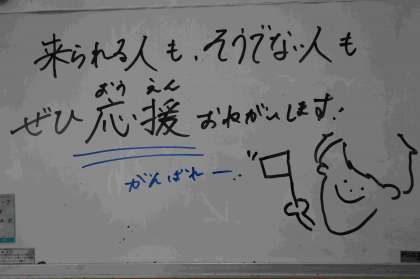 来られる人も、そうでない人も
おうえん
ぜひ応援おねがいします.
がんばれー..